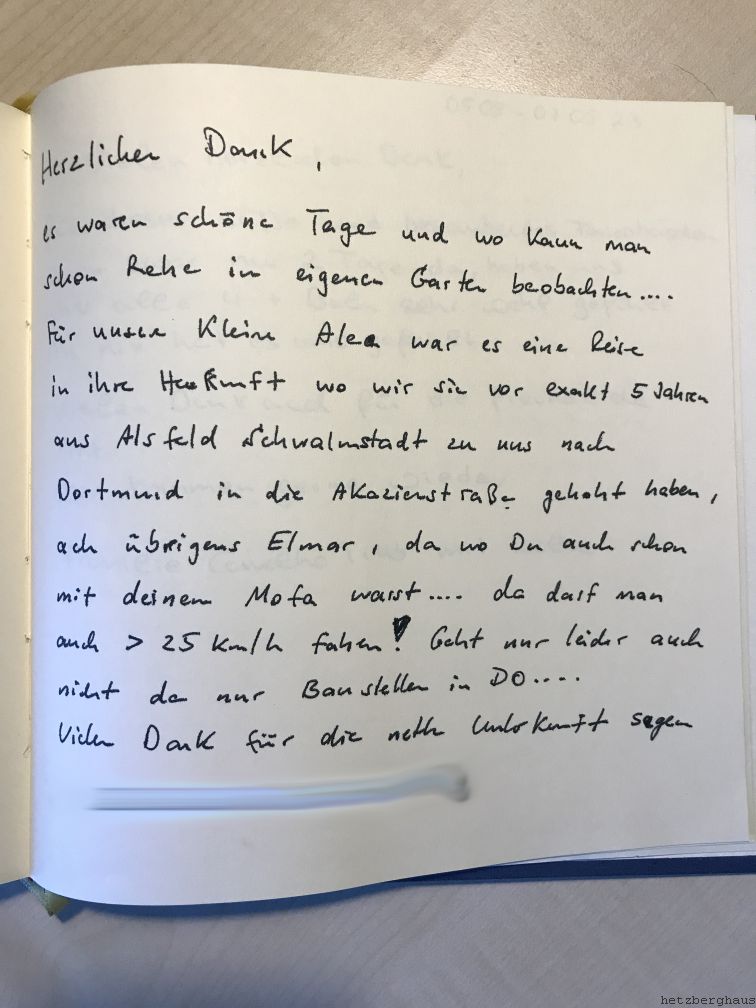 Herzlichen Dank,
es waren schöne Tage und wo kann man
schon Rehe im eigenen Garten beobachten....
Für unsere Kleine Alea war es eine Reise
in ihre Herkunft wo wir sie vor exakt 5 Jahren
aus Alsfeld Schwalmstadt zu uns nach
Dortmund in die Akazienstraße geholt haben,
ach übrigens Elmar, da wo Du auch schon
mit deinem Mofa warst.... da darf man
auch > 25 km/h fahren! Geht nur leider auch
nicht da nur Baustellen in DO....
Vielen Dank für die nette Unterkunft sagen
hetzberghaus